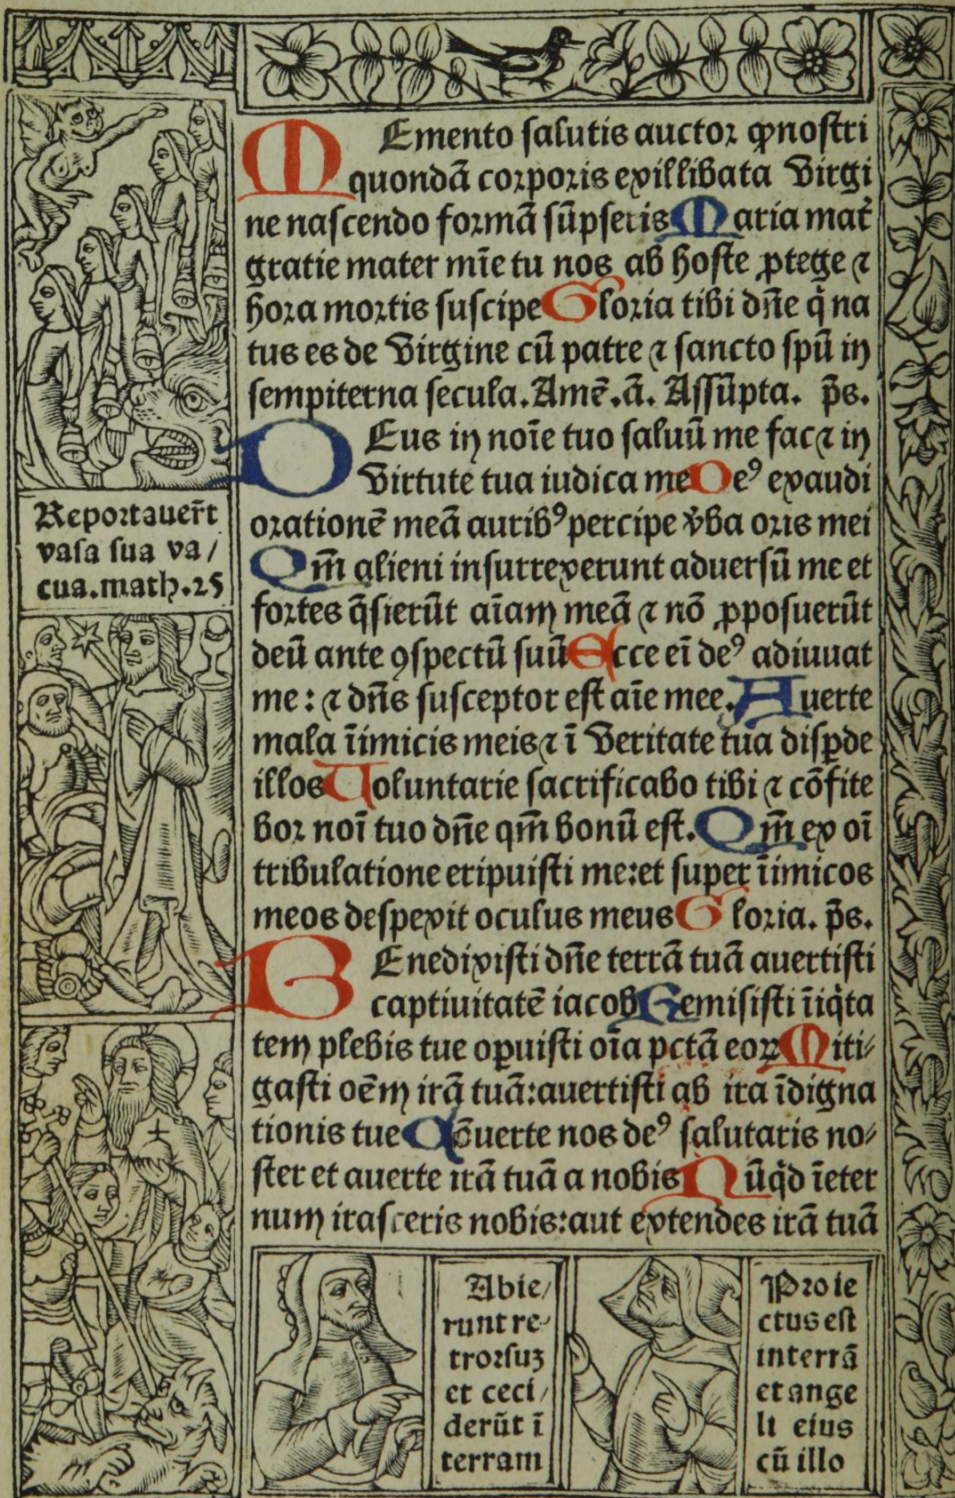 MEmento salutis auctor ꝙ nostri
quondã corporis ex illibata Virgi
ne nascendo formã sũpseris Maria mat᷑
gratie mater mie̅ tu nos ab hoste ꝓtege ⁊
hora mortis suscipe Gloria tibi dñe q̇ na
tus es de Virgine cũ patre ⁊ sancto spũ in
sempiterna secula. Amẽ. ã. Assũpta. p̃s.
DEus in noĩe tuo saluũ me fac ⁊ in
Virtute tua iudica me Deꝰ exaudi
orationẽ meã auribꝰ percipe v̾ba oris mei
Qm̃ alieni insurrexerunt aduersũ me et
fortes q̃sierũt aĩam meã ⁊ nõ ꝓposuerũt
deũ ante ꝯspectũ suũ Ecce ei̅ deꝰ adiuuat
me: ⁊ dñs susceptor est aĩe mee. Auerte
mala ĩimicis meis ⁊ ĩ Veritate tua disꝑde
illos Uoluntarie sacrificabo tibi ⁊ cõfite
bor noĩ tuo dñe qm̃ bonũ est. Qm̃ ex oĩ
tribulatione eripuisti me: et super ĩimicos
meos despexit oculus meus Gloria. p̃s.
BEnedixisti dñe terrã tuã auertisti
captiuitatẽ iacob Remisisti ĩiq̇ta
tem plebis tue oꝑuisti oĩa pctã eoꝝ Miti⸗
gasti oẽm irã tuã: auertisti ab ira ĩdigna
tionis tue Cõuerte nos deꝰ salutaris no⸗
ster et auerte irã tuã a nobis Nũq̇d ĩeter
num irasceris nobis: aut extendes irã tuã
Reportauer̃t
vasa sua va/
cua. math. 25
Abie/
runt re⸗
trorsuz
et ceci/
derũt ĩ
terram
Proie
ctus est
in terrã
et ange
li eius
cũ illo